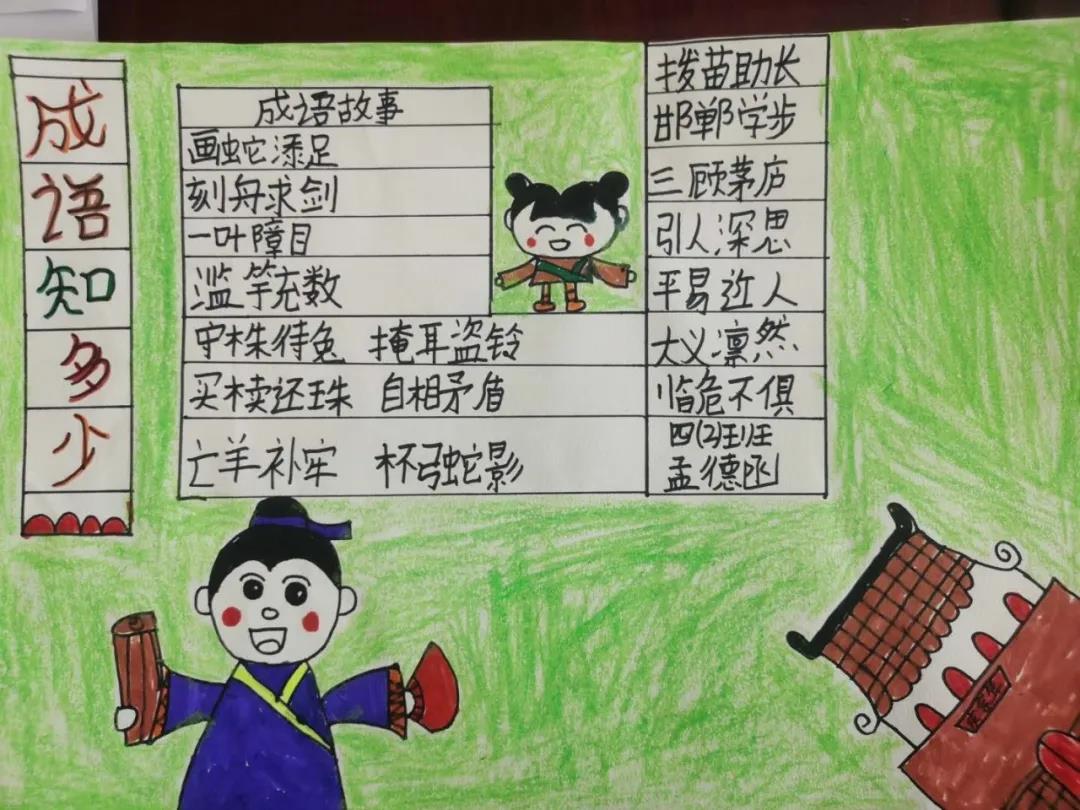 成语知多少
成语故事
画蛇添足
刻舟求剑
一叶障目
滥竽充数
守株待兔 掩耳盗铃
买椟还珠 自相矛盾
亡羊补牢 杯弓蛇影
拨苗助长
邯郸学步
三顾茅庐
引人深思
平易近人
大义凛然
临危不俱
四(2)班
孟德函